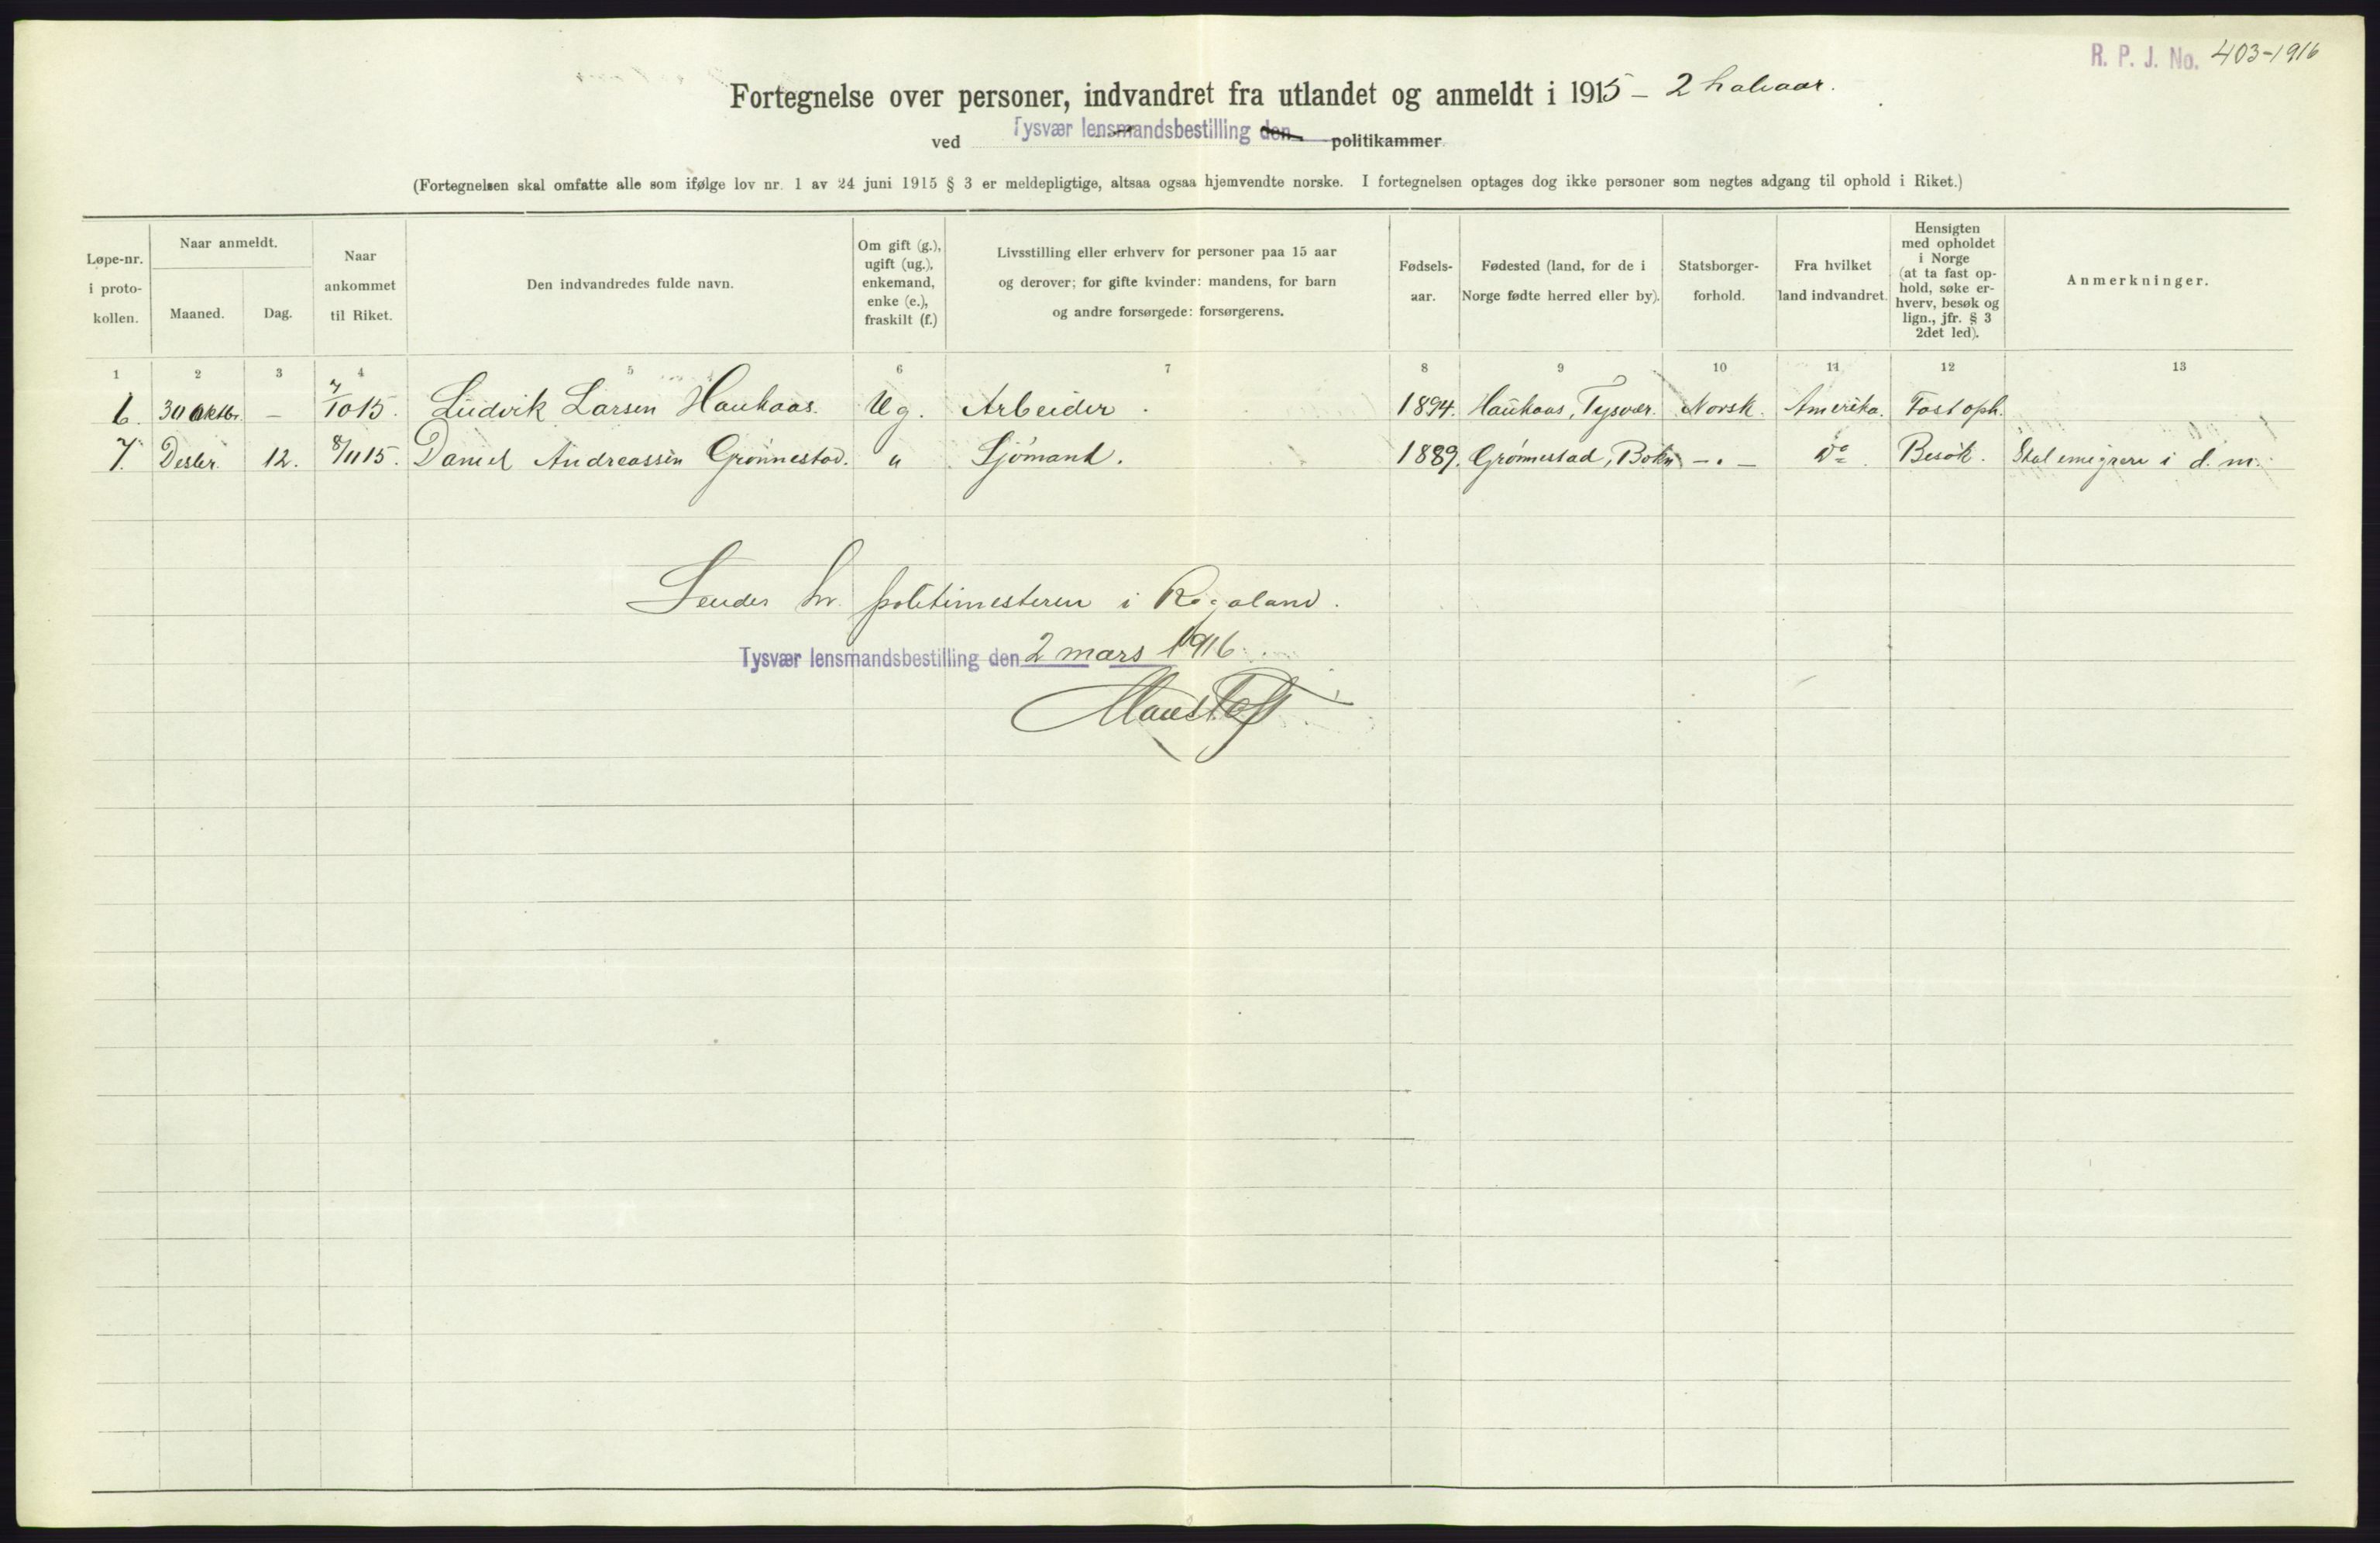 R. P. J. No. 403-1916
Fortegnelse over personer, indvandret fra utlandet og anmeldt i 1915 - 2 halvaar.
ved Tysvær lensmandsbestilling den politikammer
(Fortegnelsen skal omfatte alle som ifølge lov nr. 1 av 24 juni 1915 § 3 er meldepligtige, altsaa ogsaa hjemvendte norske. I fortegnelsen optages dog ikke personer som negtes adgang til ophold i Riket.)
Løpe-nr.
i proto-
kollen.
Naar anmeldt.
Maaned.
Dag.
Naar
ankommet
til Riket.
Den indvandredes fulde navn.
Om gift (g.),
ugift (ug.),
enkemand,
enke (e.),
fraskilt (f.)
Livsstilling eller erhverv for personer paa 15 aar
og derover; for gifte kvinder: mandens, for barn
og andre forsørgede: forsørgerens.
Fødsels-
aar.
Fødested (land, for de i
Norge fødte herred eller by).
Statsborger-
forhold.
Fra hvilket
land indvandret.
Hensigten
med opholdet
i Norge
(at ta fast op-
hold, søke er-
hverv, besøk og
lign., jfr. § 3
2det led).
Anmerkninger.
1 2 3 4 5 6 7 8 9 10 11 12 13
6. 30 Oktbr. - 7/10 15. Ludvik Larsen Haukaas. Ug. Arbeider. 1894. Haukaas, Tysvær. Norsk. Amerika. Fast oph.
7. Desbr. 12. 8/11 15. Daniel Andreassen Grønnestad. " Sjömand. 1889. Grønnestad, Bokn -"- Do. Besök. Skal emigrere i d. m.
Sendes hr. politimesteren i Rogaland.
Tysvær lensmandsbestilling den 2 mars 1916